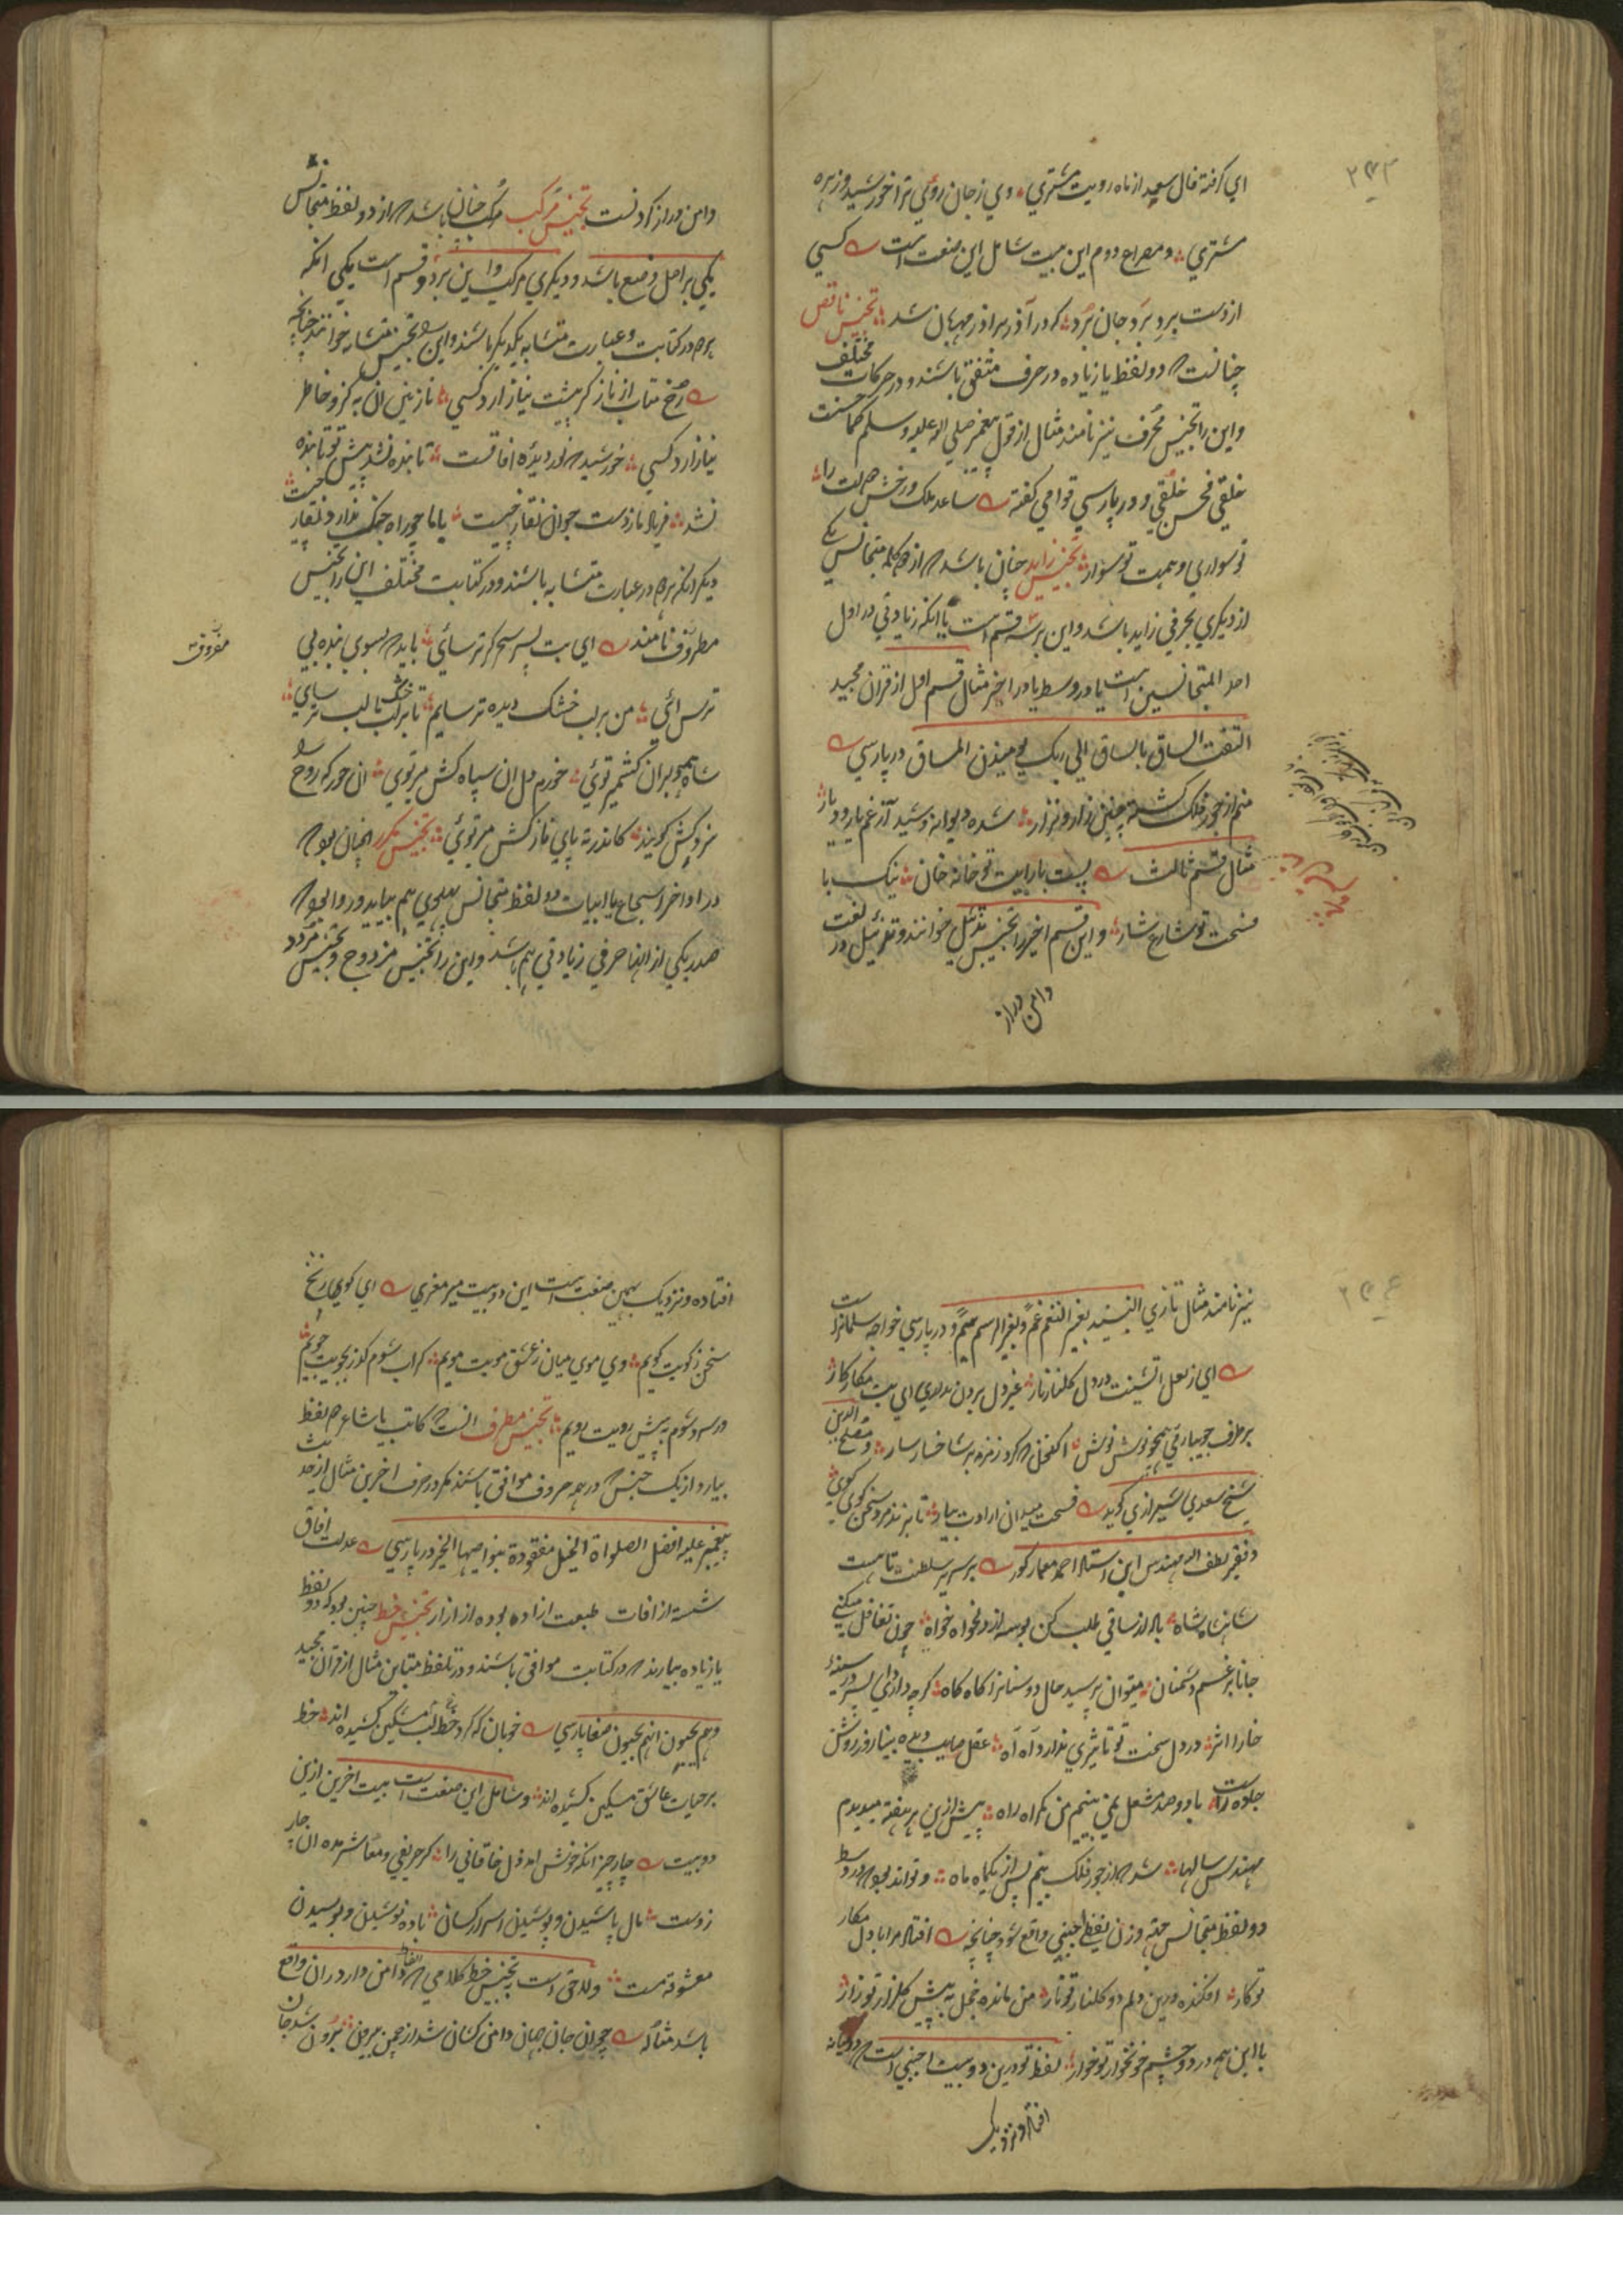 ۲۴۳
ای گرفته فال سعد از ماه رویت مشتری وی ز جان روی ترا خورشید و زهره
مشتری و مصراع دوم این بیت شامل این صنعت است کسی
از دست برد برد جان برد که در آذر بر آذر مهمان شد تجنیس ناقص
چنانست که دو لفظ یا زیاده در حرف متفق باشند و در حرکات مختلف
و این را تجنیس محرف نیز نامند مثال از قول پیغمبر صلی الله علیه و سلم کما حسنت
خلقی فحسن خلقی و در پارسی قوامی گفته ساعد ملک و رخش دولت را
تو سواری و همت تو سوار تجنیس زاید چنان باشد که از دو کلمه متجانس یکی
از دیگری بحرفی زاید باشد و این بر سه قسم است یا انکه زیادتی در اول
احد المتجانسین است یا در وسط یا در اخر مثال قسم اول از قران مجید
التفت الساق بالساق الی ربک یومیذن المساق در پارسی
منم از جور فلک گشته چنین زار و نزار شده دیوانه و شیدا ز غم یار و دیار
مثال قسم ثالث پست با رایت تو خانه خان نیک با
فسحت تو شارع شار و این قسم اخیر را تجنیس تذئیل خوانند و تذئیل در لغت
دامن دراز
دامن دراز کردنست تجنیس مرکب مرکب چنان باشد که از دو لفظ متجانس
یکی بر اصل وضع باشد و دیگری مرکب و این بر دو قسم است یکی انکه
هر دو در کتابت و عبارت متشابه یکدیگر باشند و این را تجنیس متشابه خوانند چنانچه
رخ متاب از ناز گر پیشت نیاز ارد کسی نازنین ان به کزو خاطر
نیازارد کسی خورشید که نور دیده افاقست تا بنده نشد پیش تو تابنده
نشد فریاد از دست جوان نقارچیست با ما چو راه جنگ ندارد نقار چیست
دیگر انکه هر دو در عبارت متشابه باشند و در کتابت مختلف این را تجنیس
مفروق
مطروف نامند ای بت پسر مسیح گر ترسائی باید که بسوی بنده بی
ترس ائی من بر لب خشک دیده تر سایم تا بر لب خشک ما لب تر سایی
شاه همه دلبران کشمیر توئی خورم دل ان سپاه کش میر توی ان حور که روح
نزدیکش گویند کاندر ته پای نازکش میر توئی تجنیس مکرر انچنان بود که
در اواخر اسجاع یا ابیات دو لفظ متجانس پهلوی هم بیاید و روا بود که
صدر یکی از انها حرفی زیادتی هم باشد و این را تجنیس مزدوج و تجنیس مردد
۲۴۴
نیز نامند مثال تازی النبیذ بغیر النغم غم و بغیر الدسم سم و در پارسی خواجه سلمانراست
ای ز لعل اتشینت در دل گلنار نار غیر دل بردن نداری ای بت مکار کار
بر طرف جویبار نی همچو نوش نوش اکنون که کرد زمزمه بر شاخسار سار و مصلح الدین
شیخ سعدی شیرازی گوید فسحت میدان ارادت بیار تا بزند مرد سخن گوی گوی
و فقیر لطف الله مهندس ابن استاد احمد معمار گوید بر سریر سلطنت تا هست
شاهنشاه شاه باده از ساقی طلب کن بوسه از دلخواه خواه چون تغافل میکنی
جانا برغم دشمنان میتوان پرسید حال دوستانرا گاه گاه گرچه دارد ای پسر در سینهٔ
خارا اثر در دل سخت تو تاثیری ندارد آه آه عقل صایب دیده بینا رفرز روشن
جلوه راست با دو صد مشعل نمی بینم من گمراه راه پیش ازین هر هفته میدیدم
مهندس سالها شد که از جور فلک بینم پس از یکماه ماه و تواند بود که در وسط
دو لفظ متجانس جهة وزن لفظ اجنبی واقع شود چنانچه افتاد مرا با دل مکار
تو کار افکنده درین دلم دو گلنار تو نار من مانده خجل به پیش گلزار تو زار
با این همه در دو چشم خونخوار تو خوار لفظ تو درین دو بیت اجنبی است که در میانه
افتاده و نزدیک
افتاده و نزدیک بهمین صنعت است این دو بیت میر معزی ای گوی زنخ
سخن ز کویت گویم وی موی میان ز عشق مویت مویم گر اب شوم گذر بجویت جویم
ور سرو شوم پیش رویت رویم تجنیس مطرف انست که کاتب یا شاعر دو لفظ
بیارد از یک جنس که در همه حروف موافق باشند مگر در حرف اخرین مثال از حدیث
پیغمبر علیه افضل الصلواة الخیل معقودة بنواصیها الخیر در پارسی عدلت افاق
شسته از افات طبعت ازاده بوده از ازار تجنیس خط چنین بود که دو لفظ
یا زیاده بیارند که در کتابت موافق باشند و در تلفظ متباین مثال از قران مجید
وهم یحسبون انهم یحسنون صنعا پارسی خوبان که گرد لب خط مشکین کشیده اند خط
بر حیات عاشق مسکین کشیده اند و شامل این صنعت است بیت اخرین ازین
دو بیت چار چیز انکه خوش امد دل خاقانی را گر حریفی و معاشر مده ان چار
ز دست مال پاشیدن و پوشیدن اسرار کسان باده نوشیدن و بوسیدن
معشوقه مست و ملحق است به تجنیس خط کلامی که لفظ دامن دار در ان واقع
باشد مثاله چو ان جان جهان دامن کشان شد از چمن بیرون برون شد جان